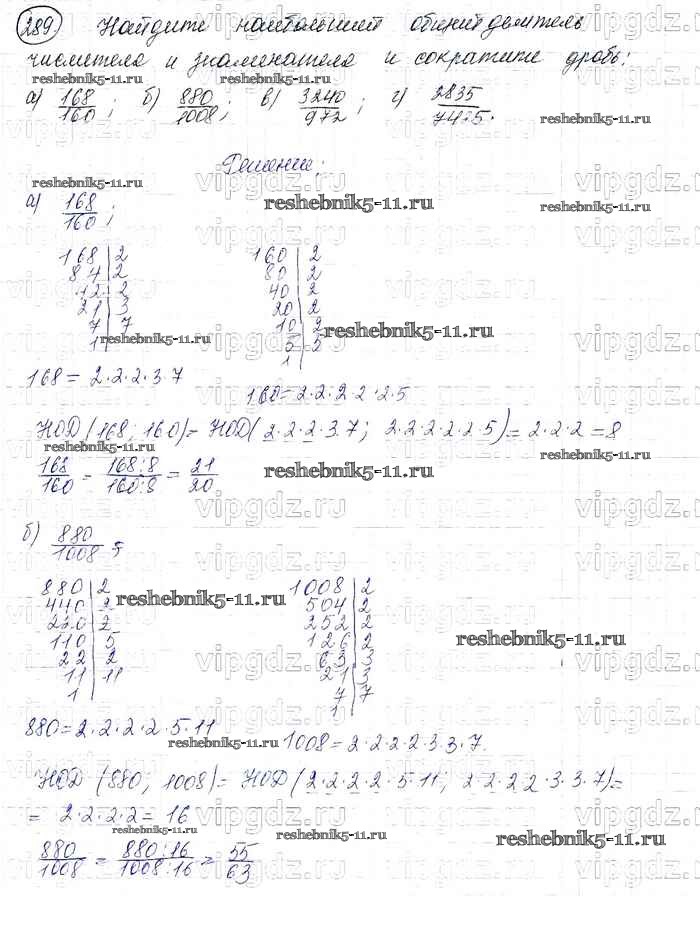 289. Найдите наибольший общий делитель
числителя и знаменателя и сократите дробь:
reshebnik5-11.ru reshebnik5-11.ru
а) 168/160; б) 880/1008; в) 3240/972; г) 2835/7425.
reshebnik5-11.ru
Решение:
reshebnik5-11.ru
vipgdz.ru vipgdz.ru
а) 168/160; reshebnik5-11.ru reshebnik5-11.ru
168 | 2 160 | 2
84 | 2 80 | 2
42 | 2 40 | 2
21 | 3 20 | 2
7 | 7 10 | 2
1 5 | 5
1
reshebnik5-11.ru reshebnik5-11.ru
168 = 2·2·2·3·7
160 = 2·2·2·2·2·5
НОД (168; 160) = НОД (2·2·2·3·7; 2·2·2·2·2·5) = 2·2·2 = 8
reshebnik5-11.ru reshebnik5-11.ru
168/160 = 168:8/160:8 = 21/20
reshebnik5-11.ru
б) 880/1008 =
880 | 2 1008 | 2
440 | 2 504 | 2
220 | 2 252 | 2
110 | 5 126 | 2
22 | 2 63 | 3
11 | 11 21 | 3
1 7 | 7
1
reshebnik5-11.ru reshebnik5-11.ru
880 = 2·2·2·2·5·11
reshebnik5-11.ru
1008 = 2·2·2·2·3·3·7.
НОД (880; 1008) = НОД (2·2·2·2·5·11; 2·2·2·2·3·3·7) =
= 2·2·2·2 = 16
reshebnik5-11.ru reshebnik5-11.ru reshebnik5-11.ru
880/1008 = 880:16/1008:16 = 55/63